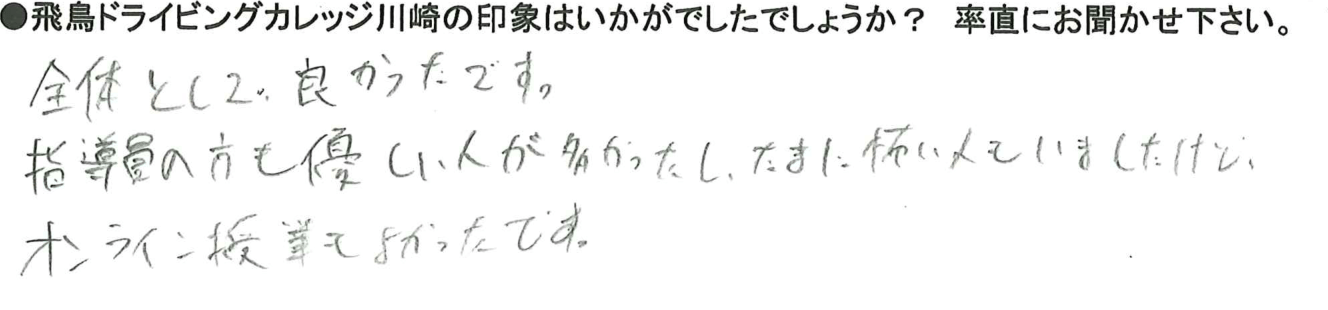 ●飛鳥ドライビングカレッジ川崎の印象はいかがでしたでしょうか？ 率直にお聞かせ下さい。
全体として、良かったです。
指導員の方も優しい人が多かったし、たまに怖い人もいましたけど、
オンライン授業もよかったです。